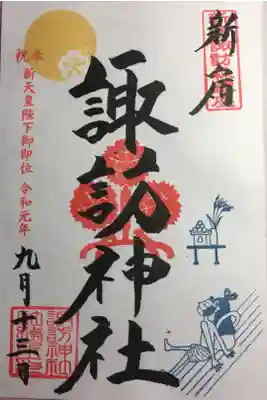 新宿
諏訪神社
奉祝
新天皇陛下御即位 令和元年
九月十三日